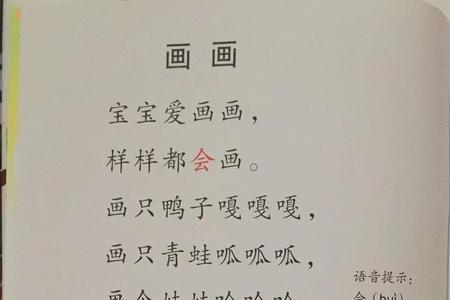 画 画
宝宝爱画画，
样样都会画。
画只鸭子嘎嘎嘎，
画只青蛙呱呱呱，
语音提示：
画个娃娃哈哈哈
会（huì）